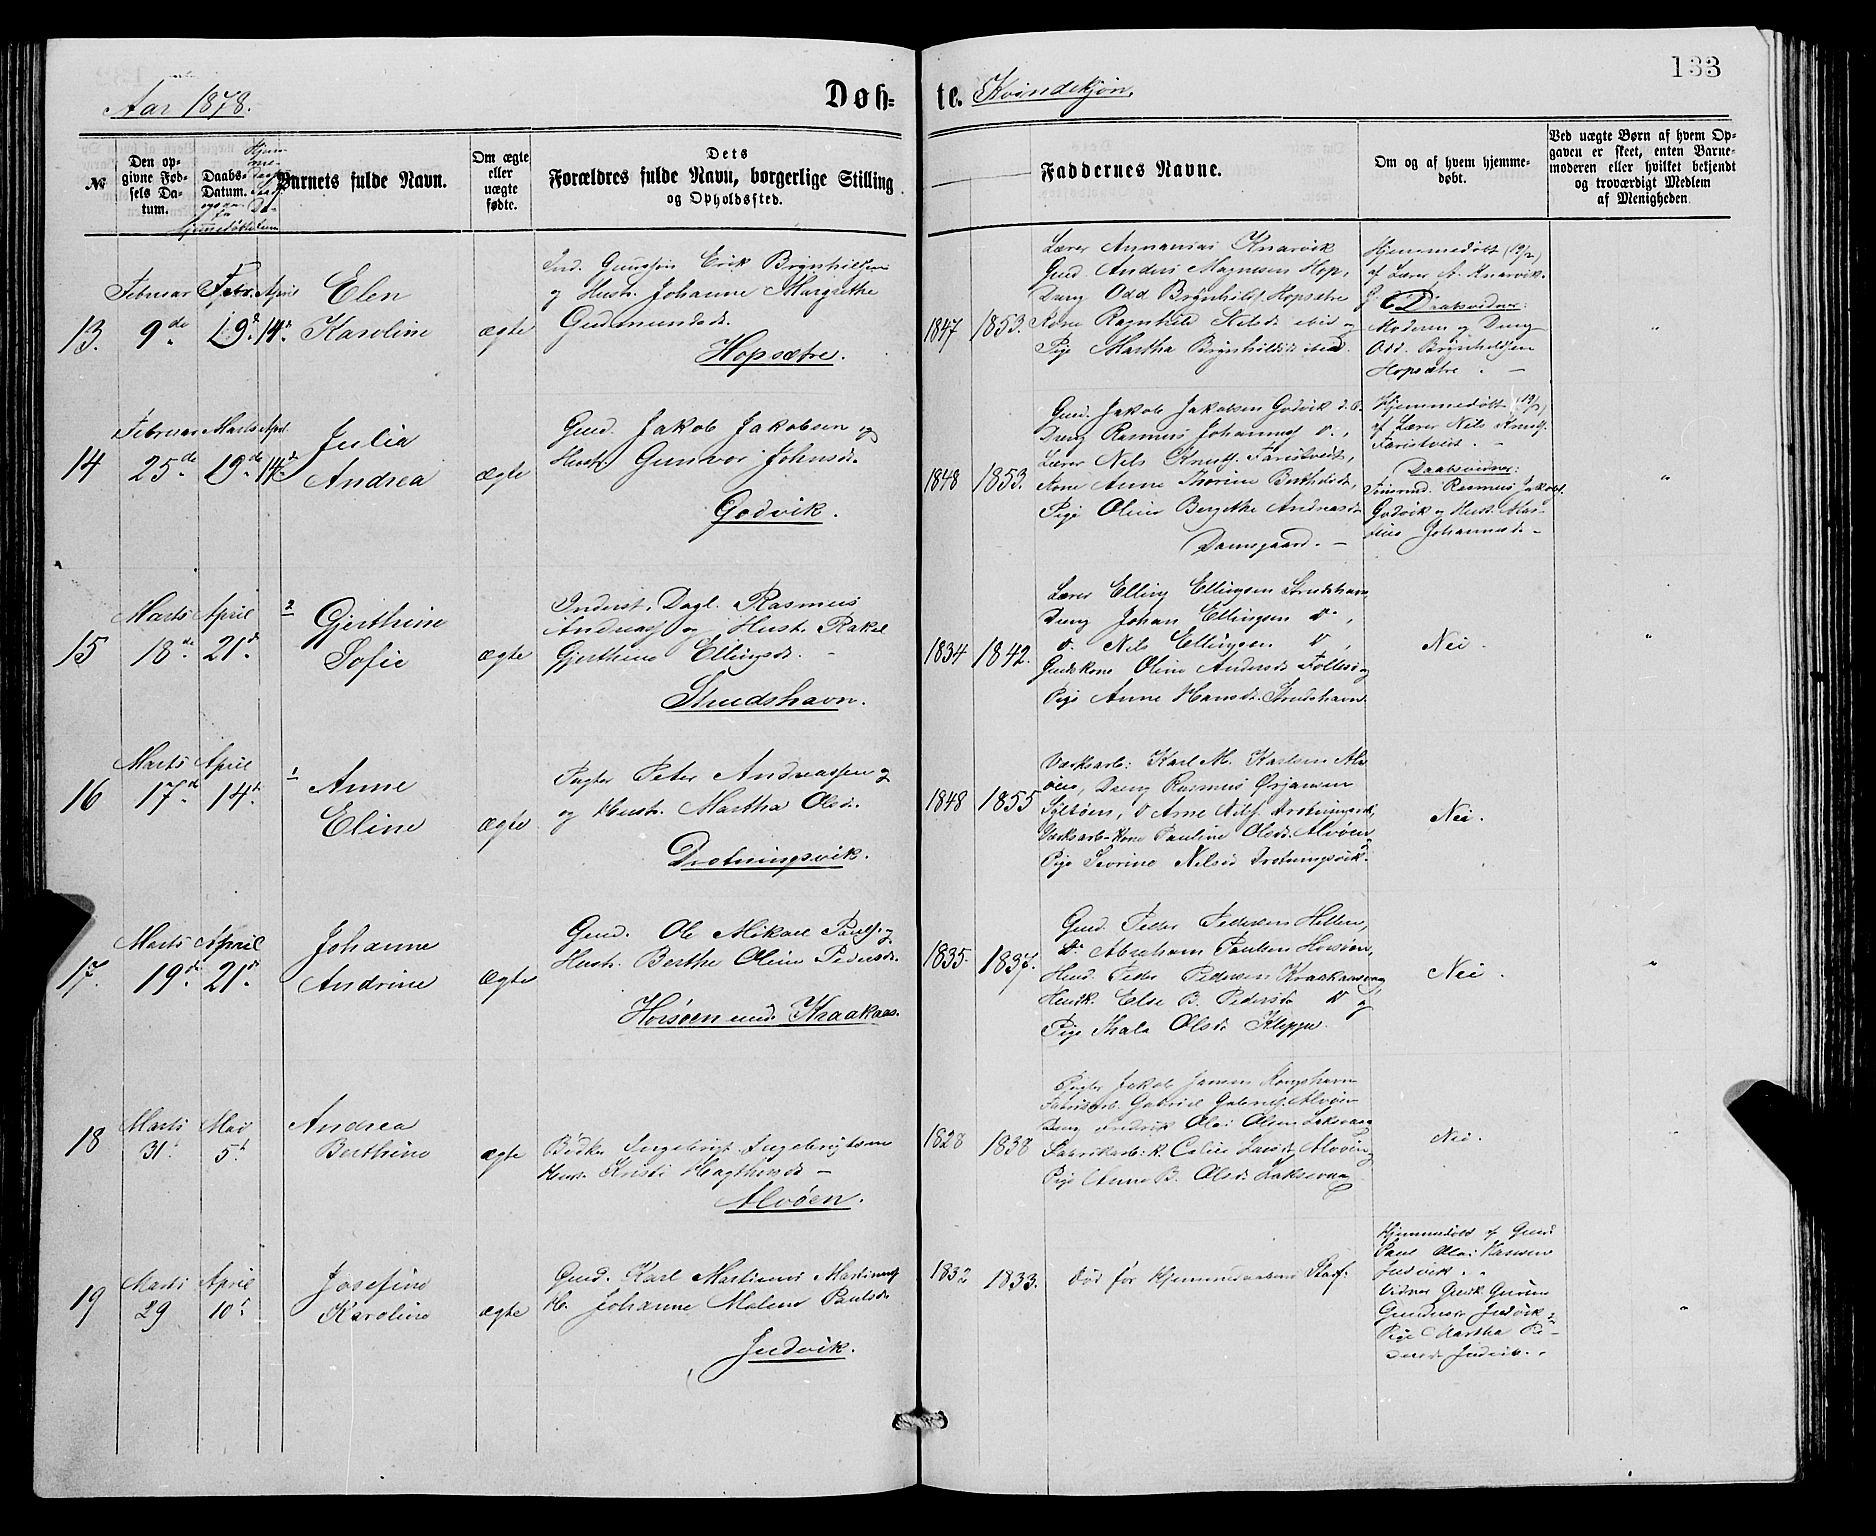 133
Aar 1878.
Døb-
te. Kvindekjøn.
№
Den op-
givne Fød-
sels Da-
tum.
Daabs-
Datum.
Barnets fulde Navn.
Om ægte
eller
uægte
fødte.
Dets
Forældres fulde Navn, borgerlige Stilling
og Opholdssted.
Faddernes Navne.
Om og af hvem hjemme-
døbt.
Ved uægte Børn af hvem Op-
gaven er skeet, enten Barne-
moderen eller hvilket bekjendt
og troværdigt Medlem
af Menigheden.
13.
Februar
9de
Febr.
19de
April
14de
Elen
Karoline
ægte
Ind. Erik Brynhildsen
og Hustr. Johanne Margrethe
Gudmundsd.
Hopsætre.
1847 1853.
Lærer Annanias Knarvik
Gmd Anders Magnesen Hop,
Dreng Odd Brynhilds. Hopsætre
Kone Ragnhild Nilsd. ibid og
Pige Martha Brynhildsd. ibid.
Hjemmedøbt (19/2)
af Lærer A. Knarvik.
Daabsvidner:
Moderen og Dreng
Odd. Brynhildsen
Hopsætre. —
"
14
Februar
25de
Marts
19de
April
14de
Julia
Andrea
ægte
Gmd. Jakob Jakobsen og
Hustr. Gunvor Johnsd.
Godvik.
1848 1853.
Gmd. Jakob Jakobsen Godvik
Dreng Rasmus Johannes.
Lærer Nils Knuts. Faristveit,
Kone Anne Thorine Bertheld.,
Pige Oline Bergithe Andreasd.
Damsgaard. —
Hjemmedøbt (19/3)
af Lærer Nils Knuts.
Faristveit. —
Daabsvidner:
Rasmus Jakobs.
Godvik og Hust.
Johannesd. —
"
15
Marts
18de
April
21de
2
Gjerthine
Sofie
ægte
Inderst, Dagl. Rasmus
Andreass. og Hustr. Rakel
Gjerthine Ellingsd. —
Strudshavn.
1834 1842.
Lærer Elling Ellingsen Strudshavn
Dreng Johan Ellingsen do,
do. Nils Ellingsen do,
Gmdskone Oline Andersd. Follesø
Pige Anne Hansd. Strudshavn.
Nei.
"
16
Marts
17de
April
14de
1
Anne
Eline
ægte
Pagter Peter Andreassen
og Hustr. Martha Olsd.
Drotningsvik.
1848 1855
Værksarb: Karl M. Karlsen Al-
vøen, Dreng Rasmus Ørjansen
Syltøen, do Arne Nils. Drotningsvik,
Værksarb-kone Pauline Olsd. Alvøen,
Pige Severine Nilsd. Drotningsvik.
Nei.
17.
Marts
19de
April
21de
Johanne
Andrine
ægte
Gmd. Ole Mikael Pauls. og
Hustr. Berthe Oline Pedersd.
Horsøen und. Kraakaas.
1835. 1837.
Gmd. Peder Pedersen Hetlen,
do. Abraham Paulsen Horsøen,
Peder Pedersen
Else B. Pedersd. do og
Pige Thale Olsd. Kleppe.
Nei.
"
18
Marts
31
Mai
5t
Andrea
Berthine
ægte
Bødker Ingebrigt Ingebrigtsen
Hust. Kristi Hagthorsd. —
Alvøen.
1828 1838
Pagter Jakob Jansen Kongshavn
Gabriel Gabriels. Alvøen
Dreng Fredrik Olai Olsen Laksevaag
Fabrikarb:k. Larsd. Alvøen
Pige Anne B. Olsd. Laksevaag
Nei.
19
Marts
29
April
10t
Josefine
Karoline
ægte
Gmd. Karl Martinus Martinus.
H. Johanne Malene Paulsd.
Judvik.
1832 1833.
Død før Hjemmedaabens Stadf.
Hjemmedøbt af Gmd.
Paul Olai Hansen
Judvik.
Vidner Gmdk. Guren
Gundersd. Judvik
Pige Martha Pe-
dersd. Judvik.
"